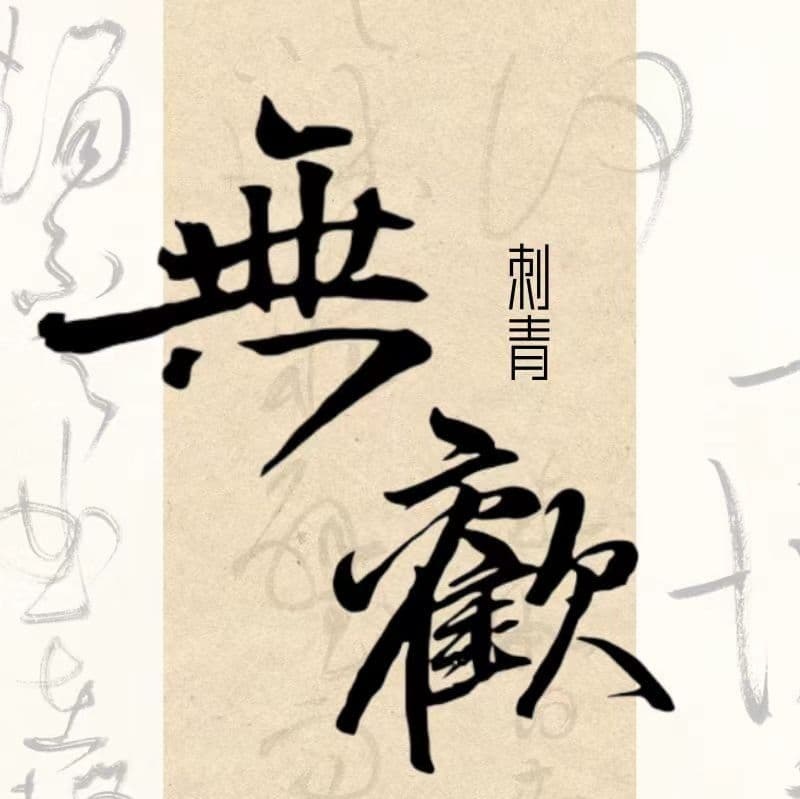 無歡
刺青